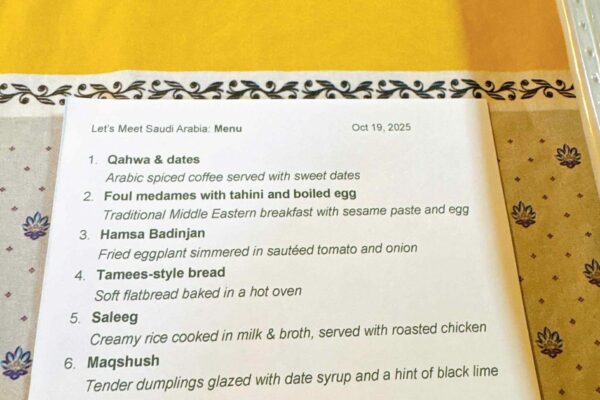 Let's Meet Saudi Arabia: Menu Oct 19, 2025
1. Qahwa & dates
Arabic spiced coffee served with sweet dates
2. Foul medames with tahini and boiled egg
Traditional Middle Eastern breakfast with sesame paste and egg
3. Hamsa Badinjan
Fried eggplant simmered in sautéed tomato and onion
4. Tamees-style bread
Soft flatbread baked in a hot oven
5. Saleeg
Creamy rice cooked in milk & broth, served with roasted chicken
6. Maqshush
Tender dumplings glazed with date syrup and a hint of black lime